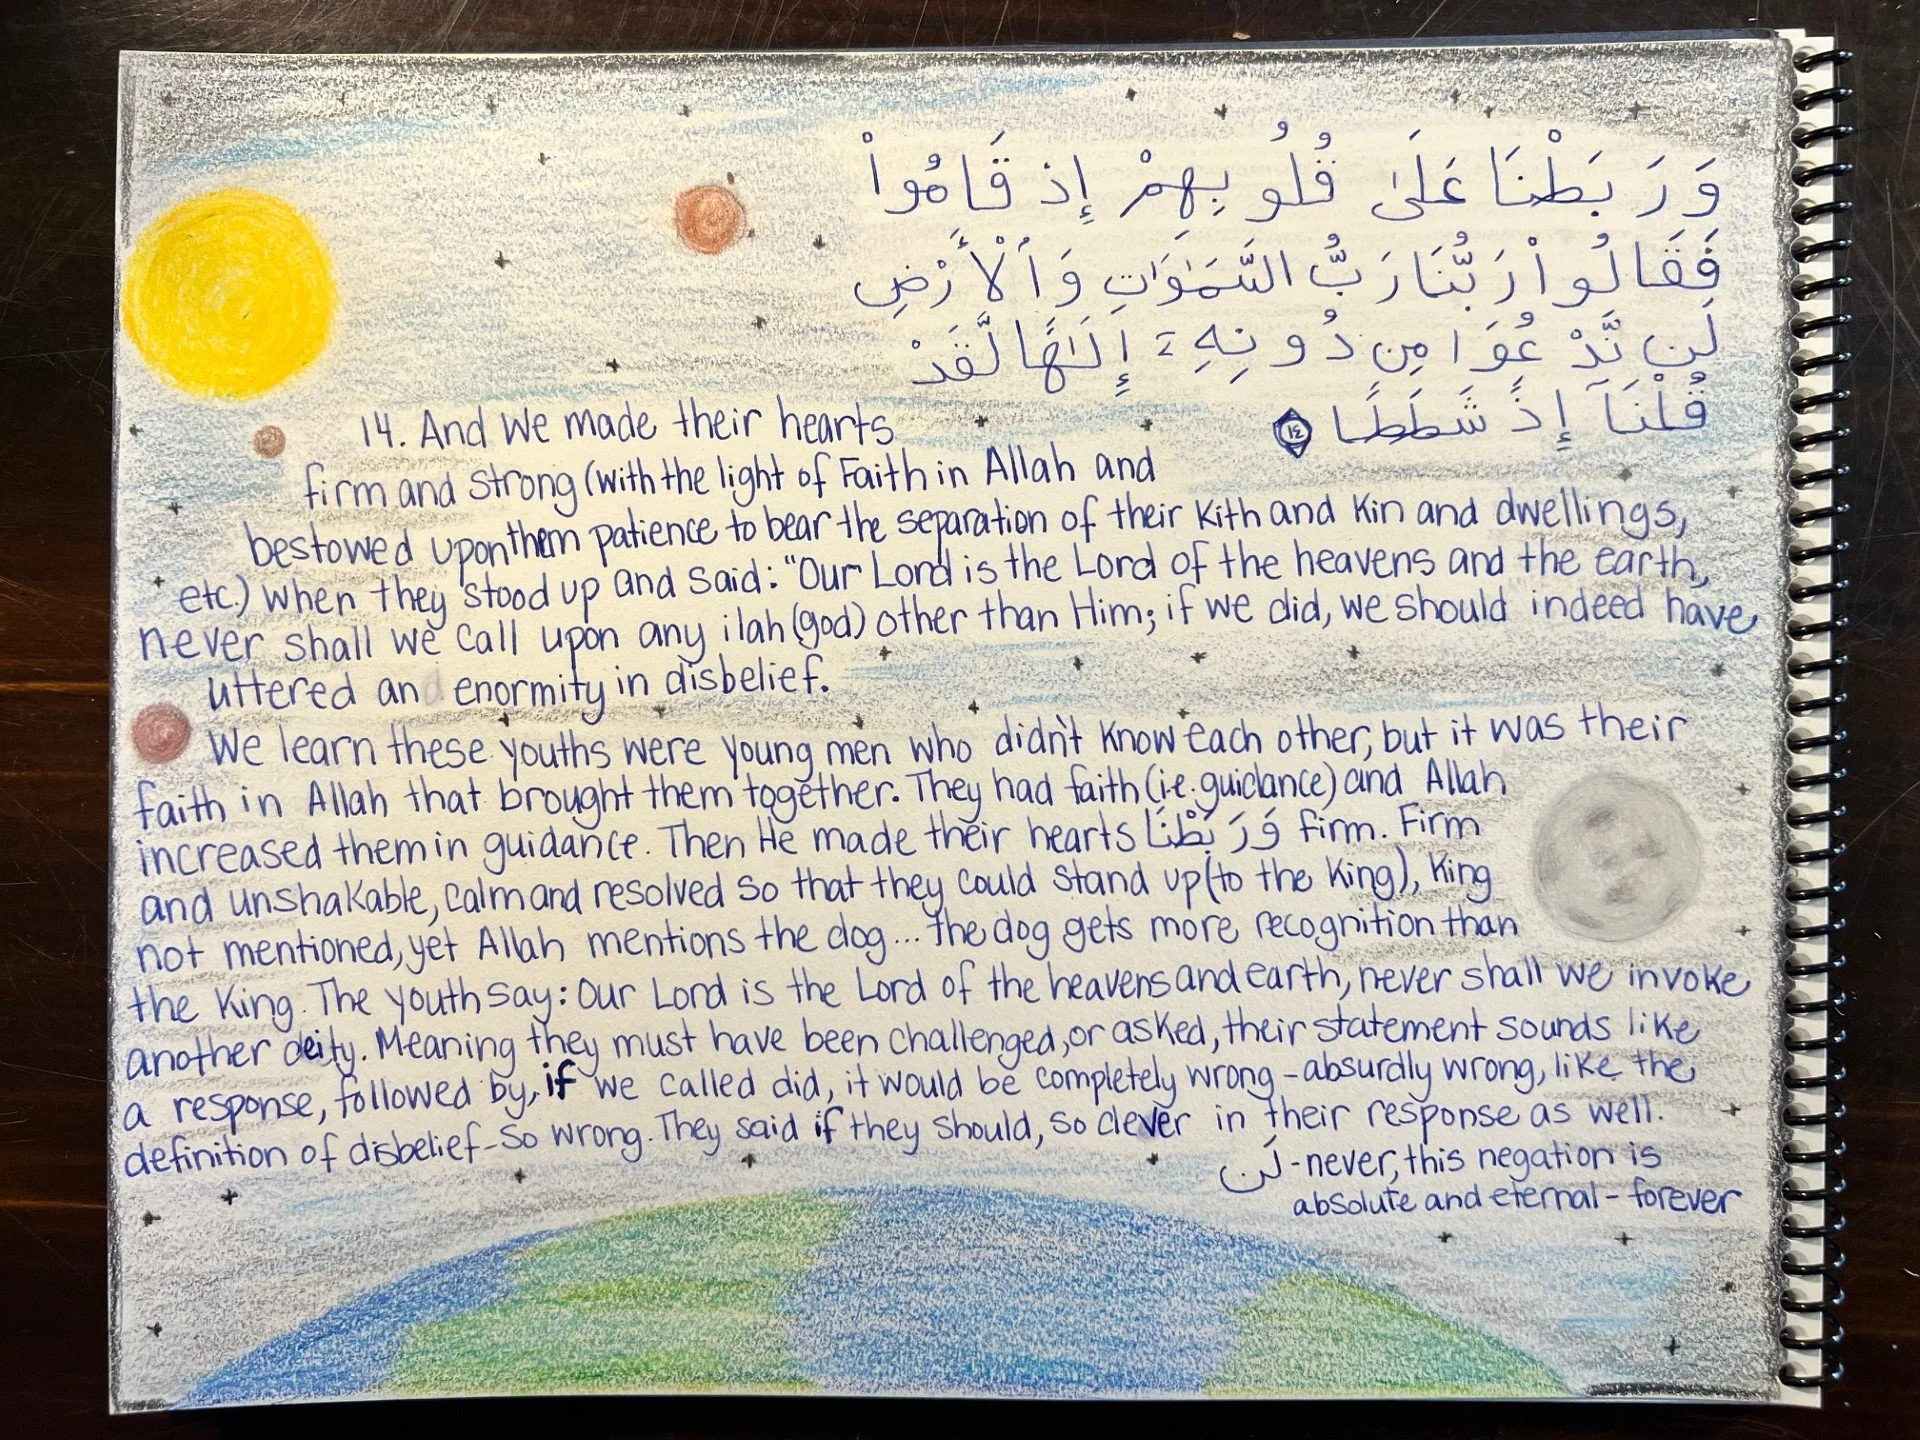 وَرَبَطْنَا عَلَىٰ قُلُوبِهِمْ إِذ قَامُواْ
فَقَالُواْ رَبُّنَا رَبُّ السَّمَٰوَٰتِ وَٱلْأَرْضِ
لَن نَّدْعُوَا مِن دُونِهِۦٓ إِلَٰهًا لَّقَدْ
قُلْنَآ إِذًا شَطَطًا ١٤
14. And We made their hearts
firm and strong (with the light of Faith in Allah and
bestowed upon them patience to bear the separation of their Kith and Kin and dwellings,
etc.) when they stood up and said: "Our Lord is the Lord of the heavens and the earth,
never shall we call upon any ilah (god) other than Him; if we did, we should indeed have
uttered an enormity in disbelief.
We learn these youths were young men who didn't know each other, but it was their
faith in Allah that brought them together. They had faith (i.e. guidance) and Allah
increased them in guidance. Then He made their hearts وَرَبَطْنَا firm. Firm
and unshakable, calm and resolved so that they could stand up (to the King), King
not mentioned, yet Allah mentions the dog... the dog gets more recognition than
the King. The youth say: Our Lord is the Lord of the heavens and earth, never shall we invoke
another deity. Meaning they must have been challenged, or asked, their statement sounds like
a response, followed by, if we called did, it would be completely wrong - absurdly wrong, like the
definition of disbelief - so wrong. They said if they should, so clever in their response as well.
لَن - never, this negation is
absolute and eternal - forever